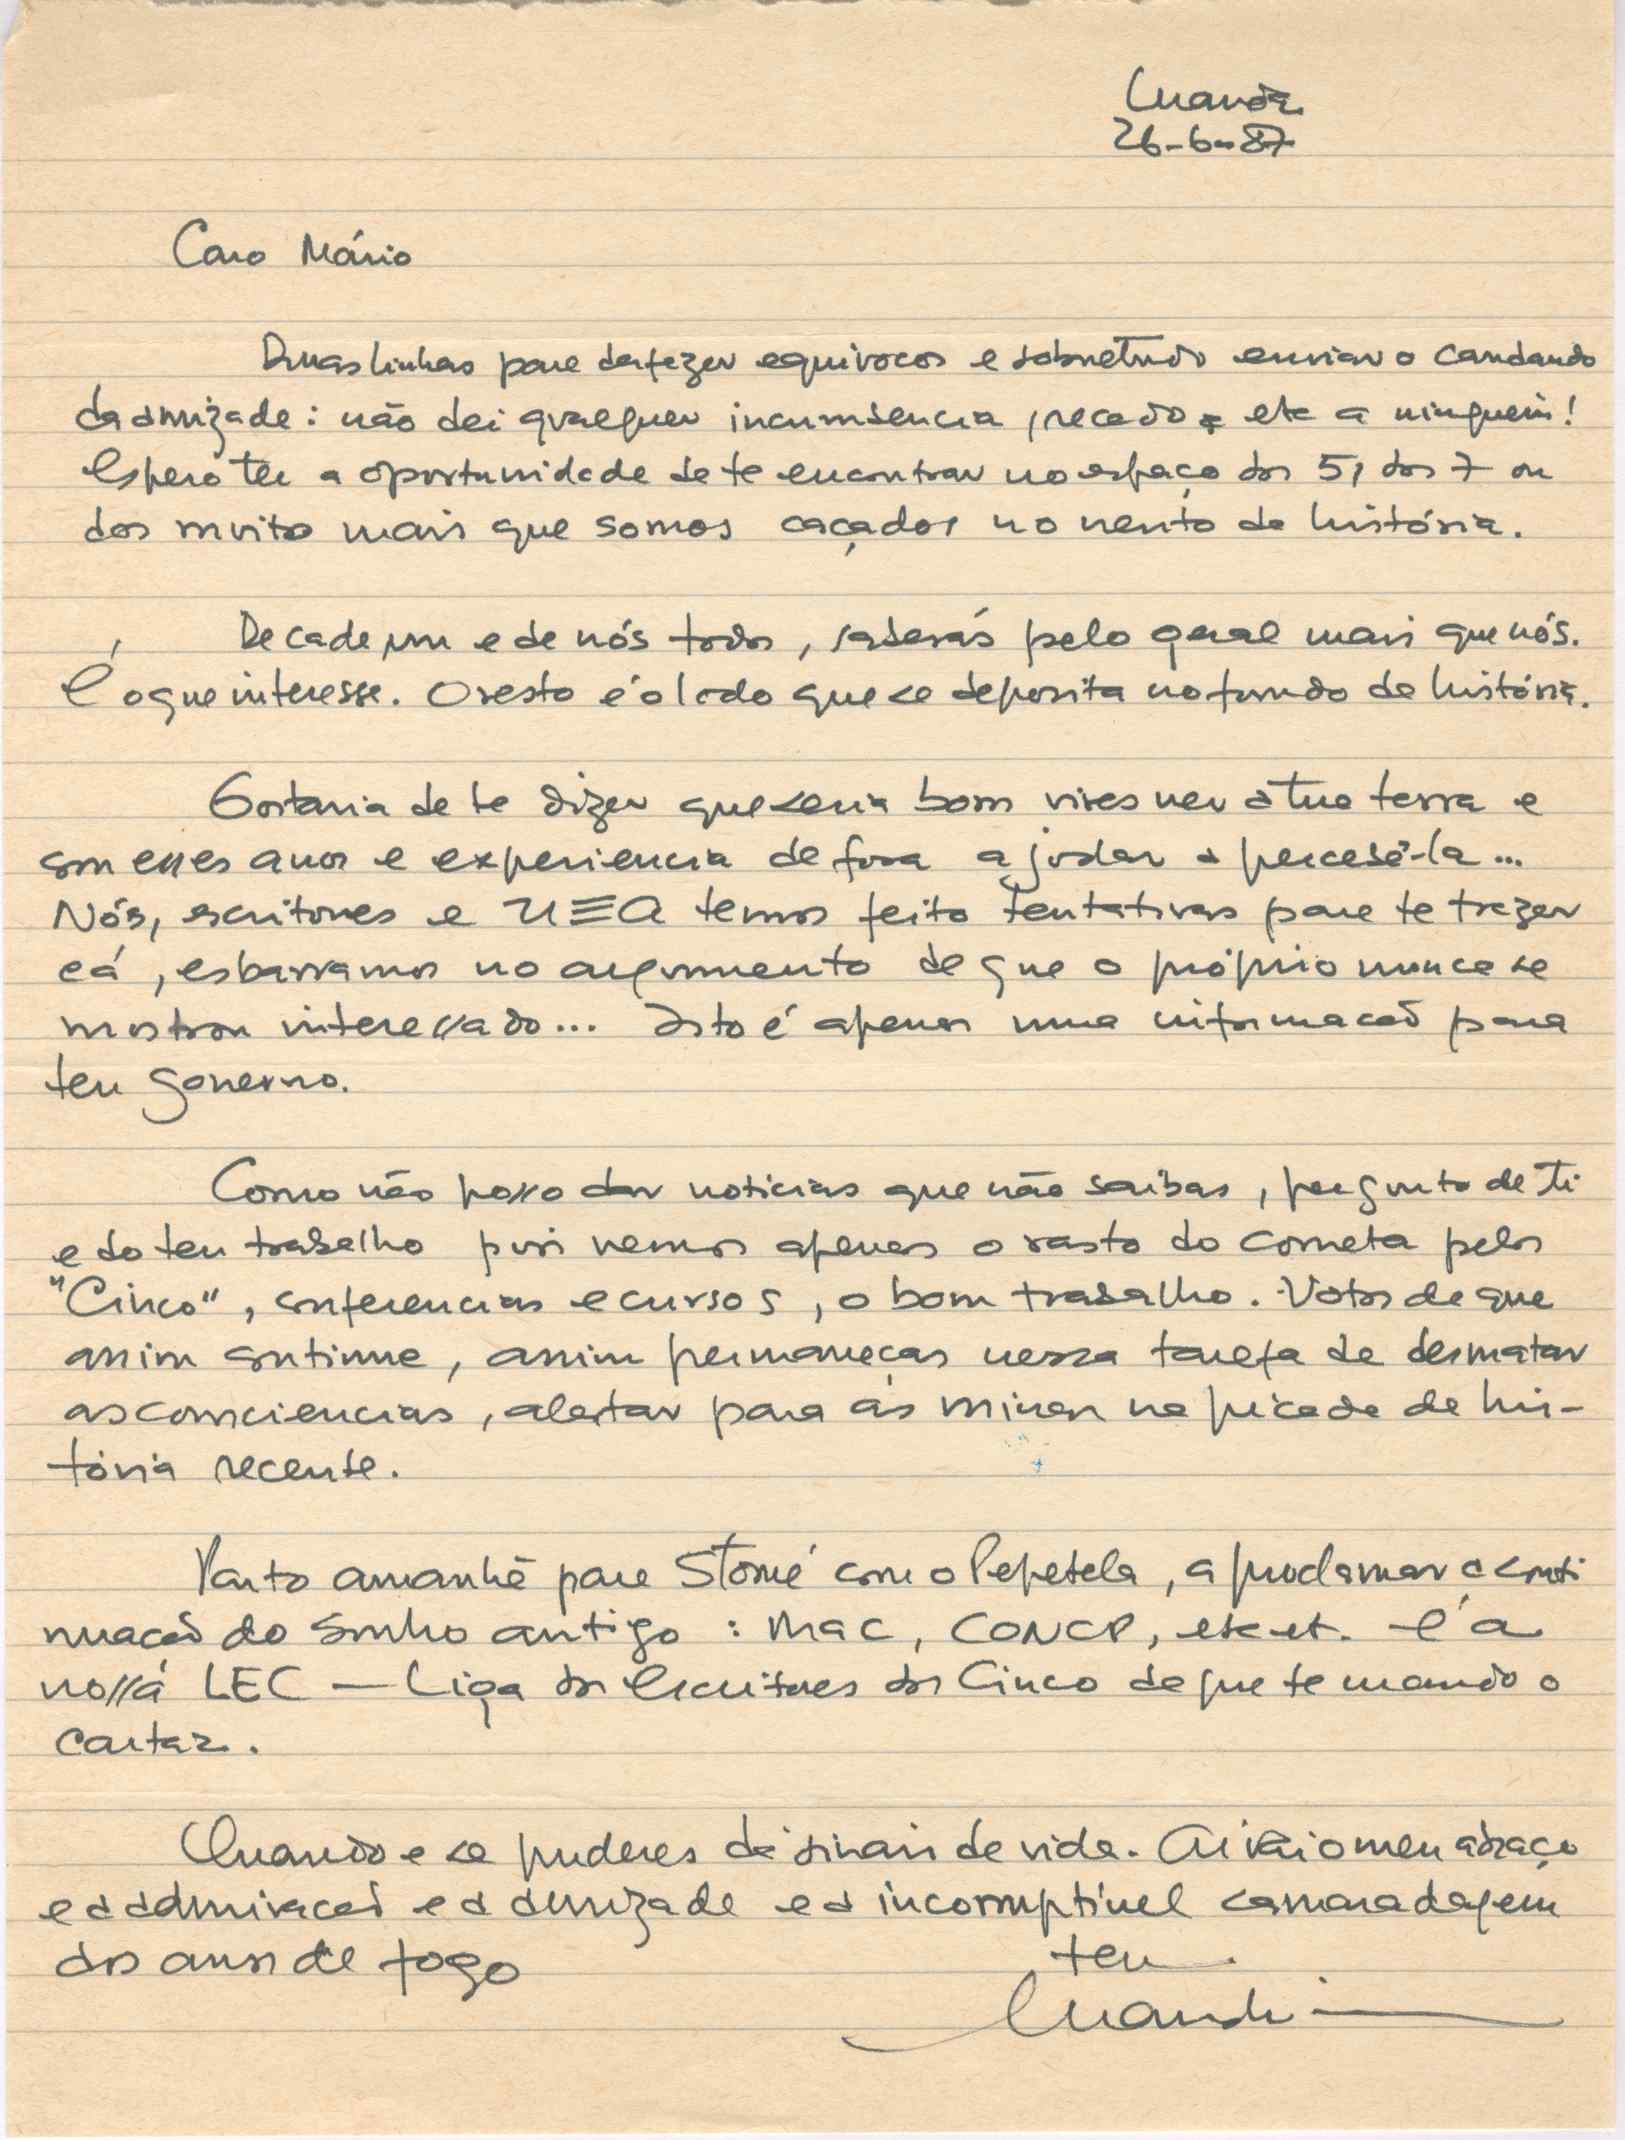 Luanda
26-6-87
Caro Mário
Duas linhas para desfazer equivocos e sobretudo enviar o candando
da amizade: não dei qualquer incumbencia, recado etc a ninguém!
Espero ter a oportunidade de te encontrar no espaço dos 5, dos 7 ou
dos muito mais que somos caçados no vento da história.
De cada um e de nós todos, saberás pelo geral mais que nós.
É o que interessa. O resto é o lodo que se deposita no fundo da história.
Gostaria de te dizer que seria bom vires ver a tua terra e
com esses anos e experiencia de fora ajudar a percebê-la...
Nós, escritores e UEA temos feito tentativas para te trazer
cá, esbarramos no argumento de que o próprio nunca se
mostrou interessado... Isto é apenas uma informação para
teu governo.
Como não posso dar noticias que não saibas, pergunto de ti
e do teu trabalho pois vemos apenas o rasto do cometa pelos
"Cinco", conferencias e cursos, o bom trabalho. Votos de que
assim continue, assim permaneças nessa tarefa de desmatar
as consciencias, alertar para as minas na picada da his-
tória recente.
Parto amanhã para S Tomé com o Pepetela, a proclamar a conti
nuação do sonho antigo: MAC, CONCP, etc etc. É a
nossa LEC — Liga dos Escritores dos Cinco de que te mando o
cartaz.
Quando e se puderes dá sinais de vida. Aí vai o meu abraço
e a admiração e a amizade e a incorruptível camaradagem
dos anos de fogo
teu
Luandino